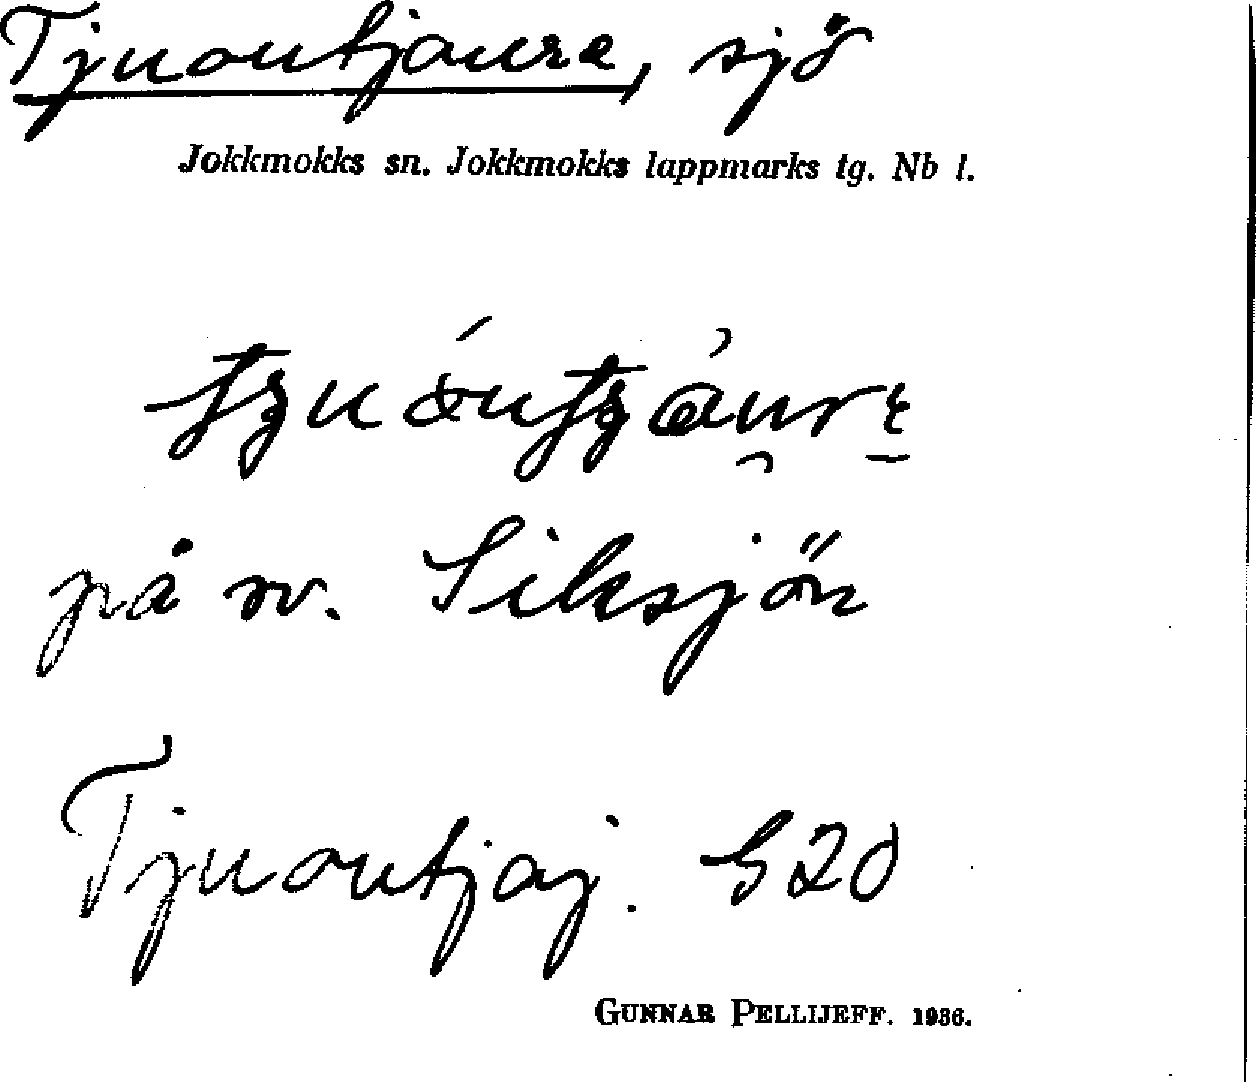 Tjuoutjaure, sjö
Jokkmokks sn. Jokkmokks lappmarks tg. Nb l.
på sv. Siksjön
Tjuoutjaj. G20
GUNNAR PELLIJEFF. 1936.